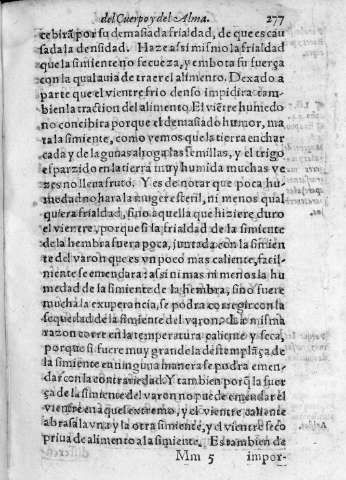 del Cuerpo y del Alma. 277
cebira por su demasiada frialdad, de que es cau
sada la densidad. Haze assi mismo la frialdad
que la simiente no se cueza, y embota su fuerça
con la qual auia de traer el alimento. Dexado a
parte que el vientre frio denso impidira tam-
bien la traction del alimento El viẽtre humedo
no concibira porque el demasiado humor, ma
ta la simiente, como vemos que la tierra enchar
cada y de lagunas ahoga las semillas, y el trigo
esparzido en la tierra muy humida muchas ve
zes no lleua fruto. Y es de notar que poca hu-
medad no hara la muger esteril, ni menos qual
quiera frialdad, sino aquella que hiziere duro
el vientre, porque si la frialdad de la simiente
de la hembra fuera poca, juntada con la simien
te del varon que es vn poco mas caliente, facil-
mente se emendara: assi ni mas ni menos la hu
medad de la simiente de la hembra, sino fuere
mucha la exuperancia, se podra corregir con la
sequedad de la simiente del varon. La misma
razon corre en la temperatura caliente y seca,
porque si fuere muy grande la destemplãça de
la simiente en ninguna manera se podra emen-
dar con la contrariedad. Y tambien porq̃ la fuer
ça de la simiente del varon no puede emendar el
vientre en aquel extremo, y el vientre caliente
abrasa la vna y la otra simiente, y el vientre seco
priua de alimento a la simiente. Es tambien de
Mm 5 impor-